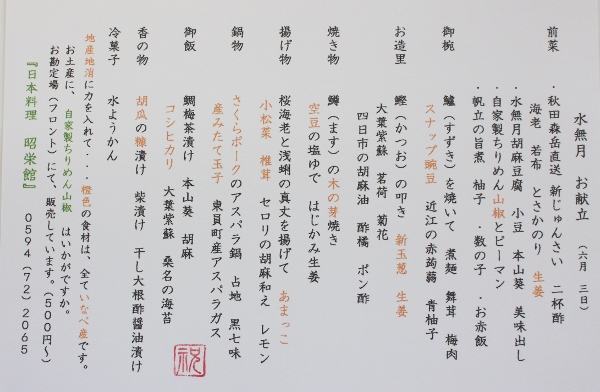 水無月 お献立 (六月 三日)
前菜 ・秋田森岳直送 新じゅんさい 二杯酢
海老 若布 とさかのり 生姜
・水無月胡麻豆腐 小豆 本山葵 美味出し
・自家製ちりめん山椒とピーマン
・帆立の旨煮 柚子 ・数の子 ・お赤飯
御椀 鱸(すずき)を焼いて 煮麺 舞茸 梅肉
スナップ豌豆 近江の赤蒟蒻 青柚子
お造里 鰹(かつお)の叩き 新玉葱 生姜
大葉紫蘇 茗荷 菊花
四日市の胡麻油 酢橘 ポン酢
焼き物 鱒(ます)の木の芽焼き
空豆の塩ゆで はじかみ生姜
揚げ物 桜海老と浅蜊の真丈を揚げて あまっこ
小松菜 椎茸 セロリの胡麻和え レモン
鍋物 さくらポークのアスパラ鍋 占地 黒七味
産みたて玉子 東員町産アスパラガス
御飯 鯛梅茶漬け 本山葵 胡麻
コシヒカリ 大葉紫蘇 桑名の海苔
香の物 胡瓜の糠漬け 柴漬け 干し大根酢醤油漬け
冷菓子 水ようかん
地産地消に力を入れて・・・橙色の食材は、全ていなべ産です。
お土産に、自家製ちりめん山椒 はいかがですか。
お勘定場(フロント)にて、販売しています。(500円~)
『日本料理 昭栄館』 0594(72)2065
祝